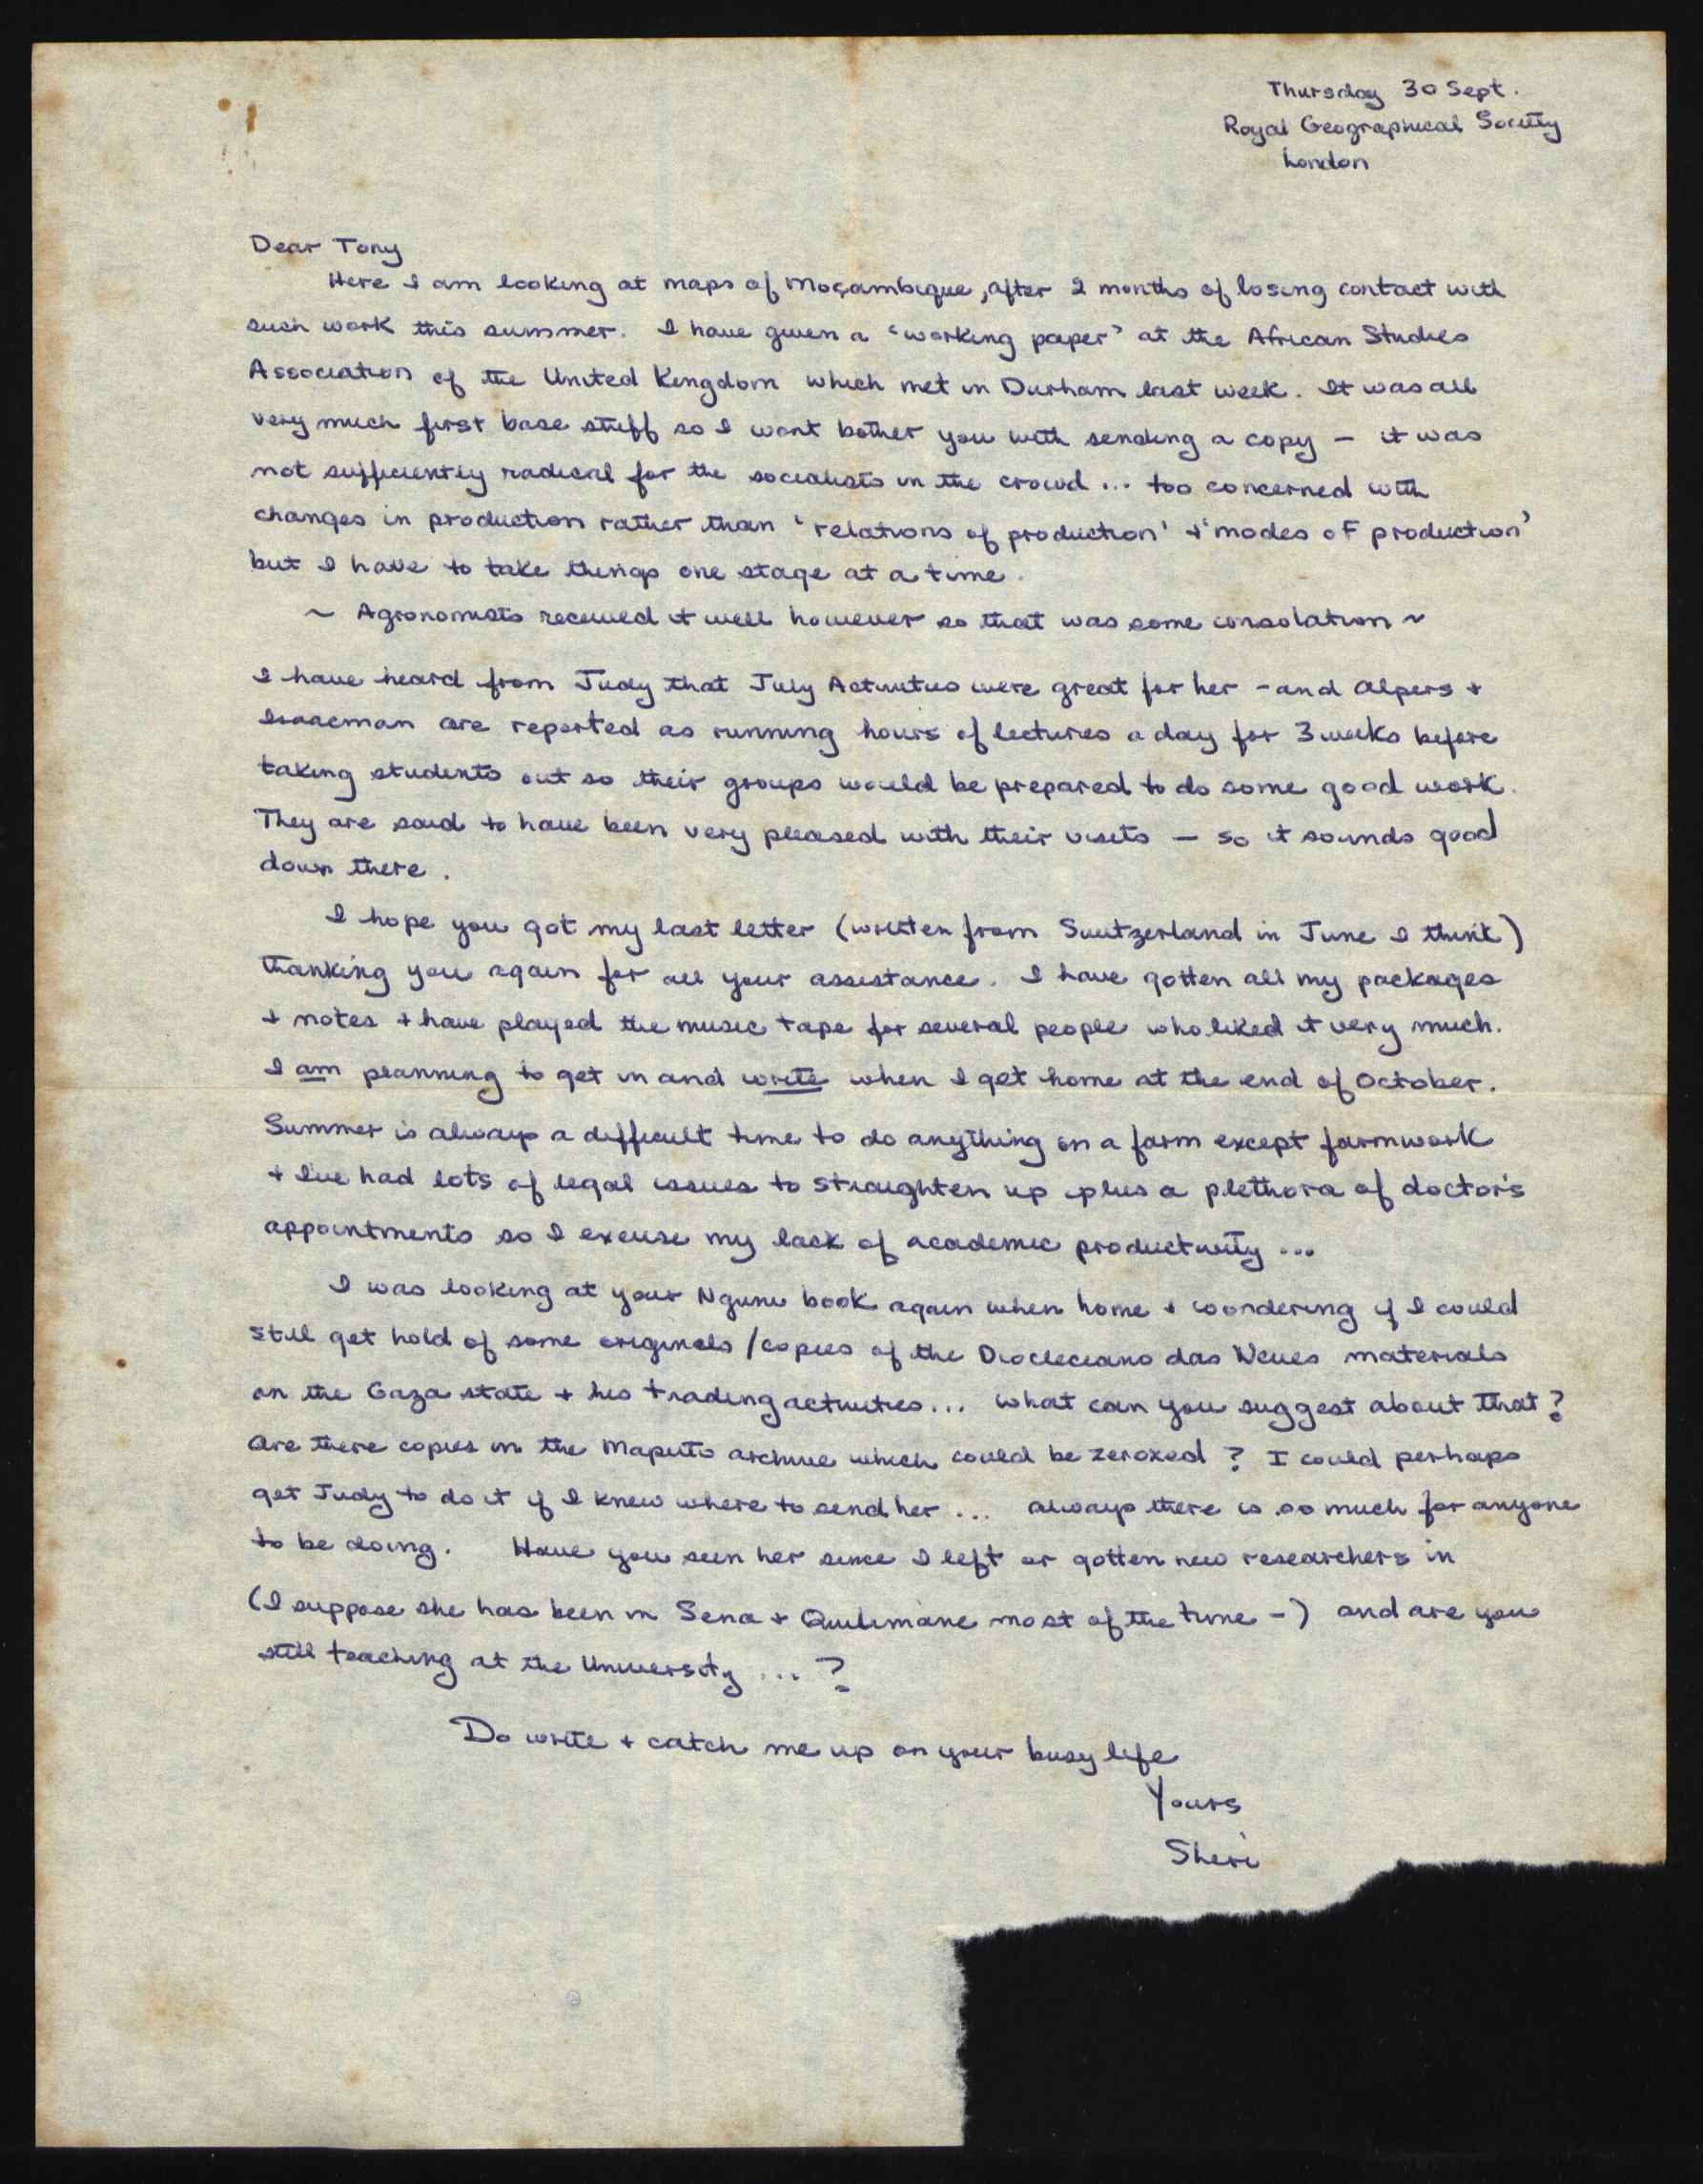 Thursday 30 Sept.
Royal Geographical Society
London
Dear Tony
Here I am looking at maps of Moçambique, after 2 months of losing contact with
such work this summer. I have given a 'working paper' at the African Studies
Association of the United Kingdom which met in Durham last week. It was all
very much first base stuff so I wont bother you with sending a copy – it was
not sufficiently radical for the socialists in the crowd ... too concerned with
changes in production rather than 'relations of production' + 'modes of production'
but I have to take things one stage at a time.
~ Agronomists received it well however so that was some consolation ~
I have heard from Judy that July Activities were great for her - and Alpers +
Isaacman are reported as running hours of lectures a day for 3 weeks before
taking students out so their groups would be prepared to do some good work.
They are said to have been very pleased with their visits – so it sounds good
down there.
I hope you got my last letter (written from Switzerland in June I think)
thanking you again for all your assistance. I have gotten all my packages
+ notes + have played the music tape for several people who liked it very much.
I am planning to get in and write when I get home at the end of October.
Summer is always a difficult time to do anything on a farm except farmwork
+ I've had lots of legal issues to straighten up plus a plethora of doctor's
appointments so I excuse my lack of academic productivity ...
I was looking at your Nguni book again when home + wondering if I could
still get hold of some originals / copies of the Diocleciano das Neves materials
on the Gaza state + his trading activities... What can you suggest about that?
Are there copies in the Maputo archive which could be zeroxed? I could perhaps
get Judy to do it if I knew where to send her ... always there is so much for anyone
to be doing. Have you seen her since I left or gotten new researchers in
(I suppose she has been in Sena + Quilimane most of the time -) and are you
still teaching at the University ... ?
Do write + catch me up on your busy life
Yours
Sheri